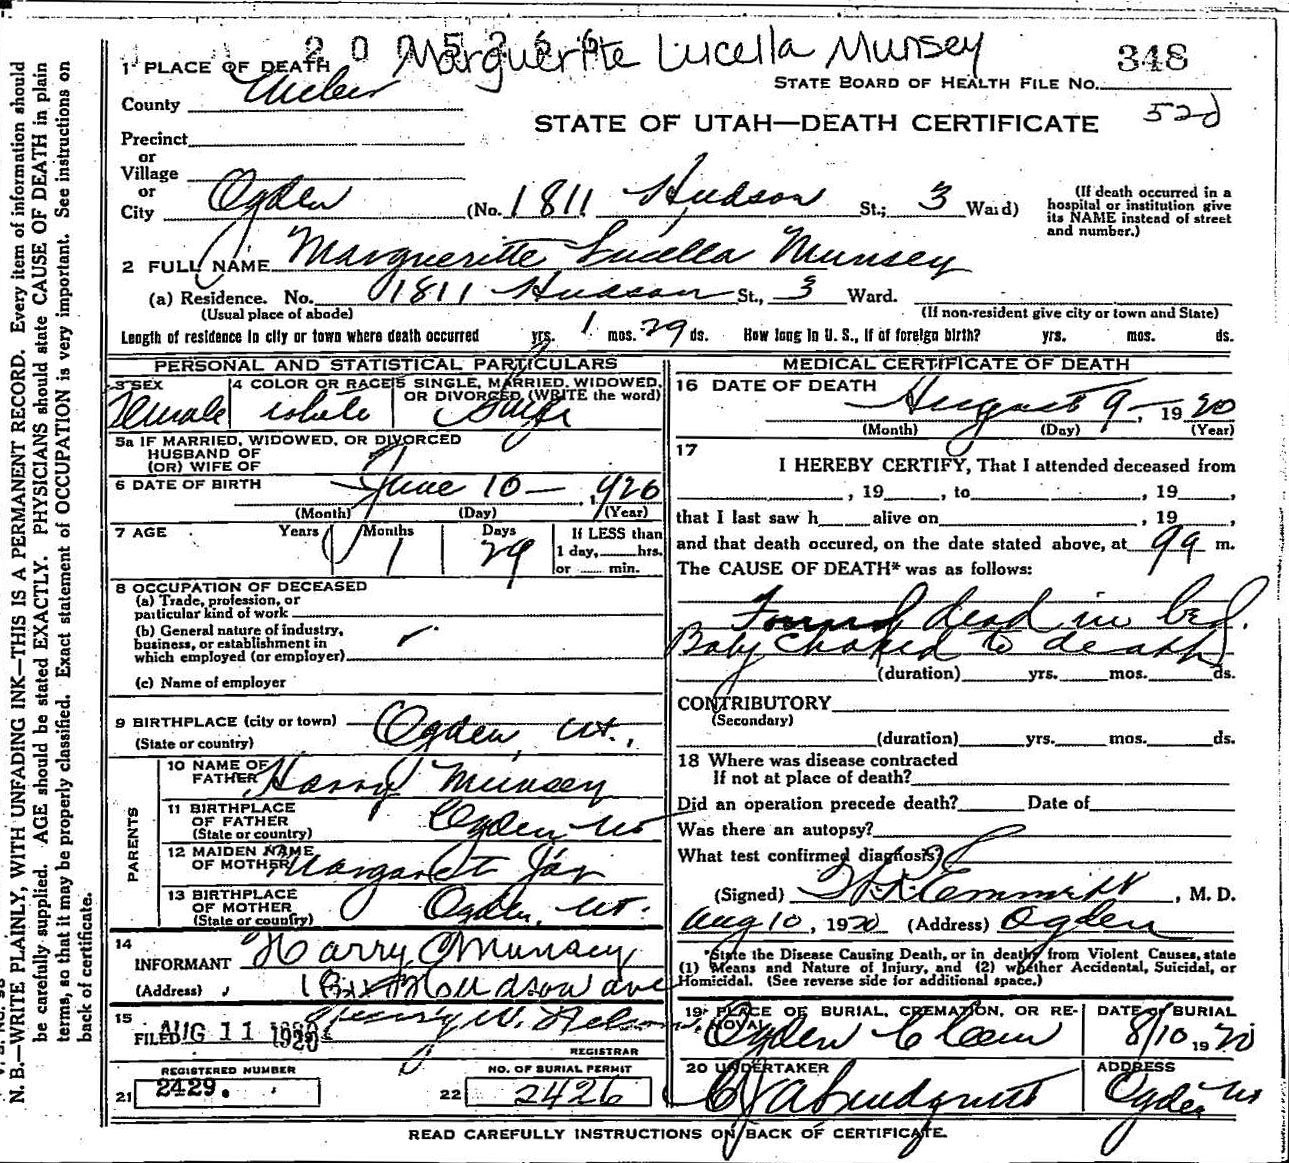 2005266 Marguerite Lucella Munsey
348
1 PLACE OF DEATH
STATE BOARD OF HEALTH FILE NO.
County Weber
52d
STATE OF UTAH—DEATH CERTIFICATE
Precinct
or
Village
or
City Ogden (No. 1811 Hudson St.; 3 Ward)
(If death occurred in a hospital or institution give its NAME instead of street and number.)
2 FULL NAME Margueritte Lucella Munsey
(a) Residence. No. 1811 Hudson St., 3 Ward.
(Usual place of abode) (If non-resident give city or town and State)
Length of residence in city or town where death occurred yrs. 1 mos. 29 ds. How long in U. S., if of foreign birth? yrs. mos. ds.
PERSONAL AND STATISTICAL PARTICULARS
3 SEX 4 COLOR OR RACE 5 SINGLE, MARRIED, WIDOWED, OR DIVORCED (WRITE the word)
Female white Single
5a IF MARRIED, WIDOWED, OR DIVORCED
HUSBAND OF
(OR) WIFE OF
6 DATE OF BIRTH June 10 — , 1920
(Month) (Day) (Year)
7 AGE Years Months Days If LESS than
1 29 1 day, hrs.
or min.
8 OCCUPATION OF DECEASED
(a) Trade, profession, or
particular kind of work
(b) General nature of industry,
business, or establishment in
which employed (or employer)
(c) Name of employer
9 BIRTHPLACE (city or town) Ogden, Ut.,
(State or country)
PARENTS
10 NAME OF FATHER Harry Munsey
11 BIRTHPLACE OF FATHER Ogden Ut
(State or country)
12 MAIDEN NAME OF MOTHER Margaret Jay
13 BIRTHPLACE OF MOTHER Ogden, Ut.
(State or country)
14
INFORMANT Harry C Munsey
(Address) 1811 Hudson ave
15
FILED AUG 11 1920 Henry W. Nelson
REGISTRAR
REGISTERED NUMBER
21 2429.
NO. OF BURIAL PERMIT
22 2426
MEDICAL CERTIFICATE OF DEATH
16 DATE OF DEATH
August 9— , 1920
(Month) (Day) (Year)
17
I HEREBY CERTIFY, That I attended deceased from
, 19 , to , 19 ,
that I last saw h alive on , 19 ,
and that death occured, on the date stated above, at 9 a m.
The CAUSE OF DEATH* was as follows:
Found dead in bed.
Baby choked to death
(duration) yrs. mos. ds.
CONTRIBUTORY
(Secondary)
(duration) yrs. mos. ds.
18 Where was disease contracted
If not at place of death?
Did an operation precede death? Date of
Was there an autopsy?
What test confirmed diagnosis?
(Signed) , M. D.
Aug 10, 1920 (Address) Ogden
*State the Disease Causing Death, or in deaths from Violent Causes, state
(1) Means and Nature of Injury, and (2) whether Accidental, Suicidal, or
Homicidal. (See reverse side for additional space.)
19 PLACE OF BURIAL, CREMATION, OR REMOVAL DATE OF BURIAL
Ogden C Cem 8/10 1920
20 UNDERTAKER ADDRESS
Ogden Ut
READ CAREFULLY INSTRUCTIONS ON BACK OF CERTIFICATE.
N. B.—WRITE PLAINLY, WITH UNFADING INK—THIS IS A PERMANENT RECORD. Every item of information should
be carefully supplied. AGE should be stated EXACTLY. PHYSICIANS should state CAUSE OF DEATH in plain
terms, so that it may be properly classified. Exact statement of OCCUPATION is very important. See instructions on
back of certificate.